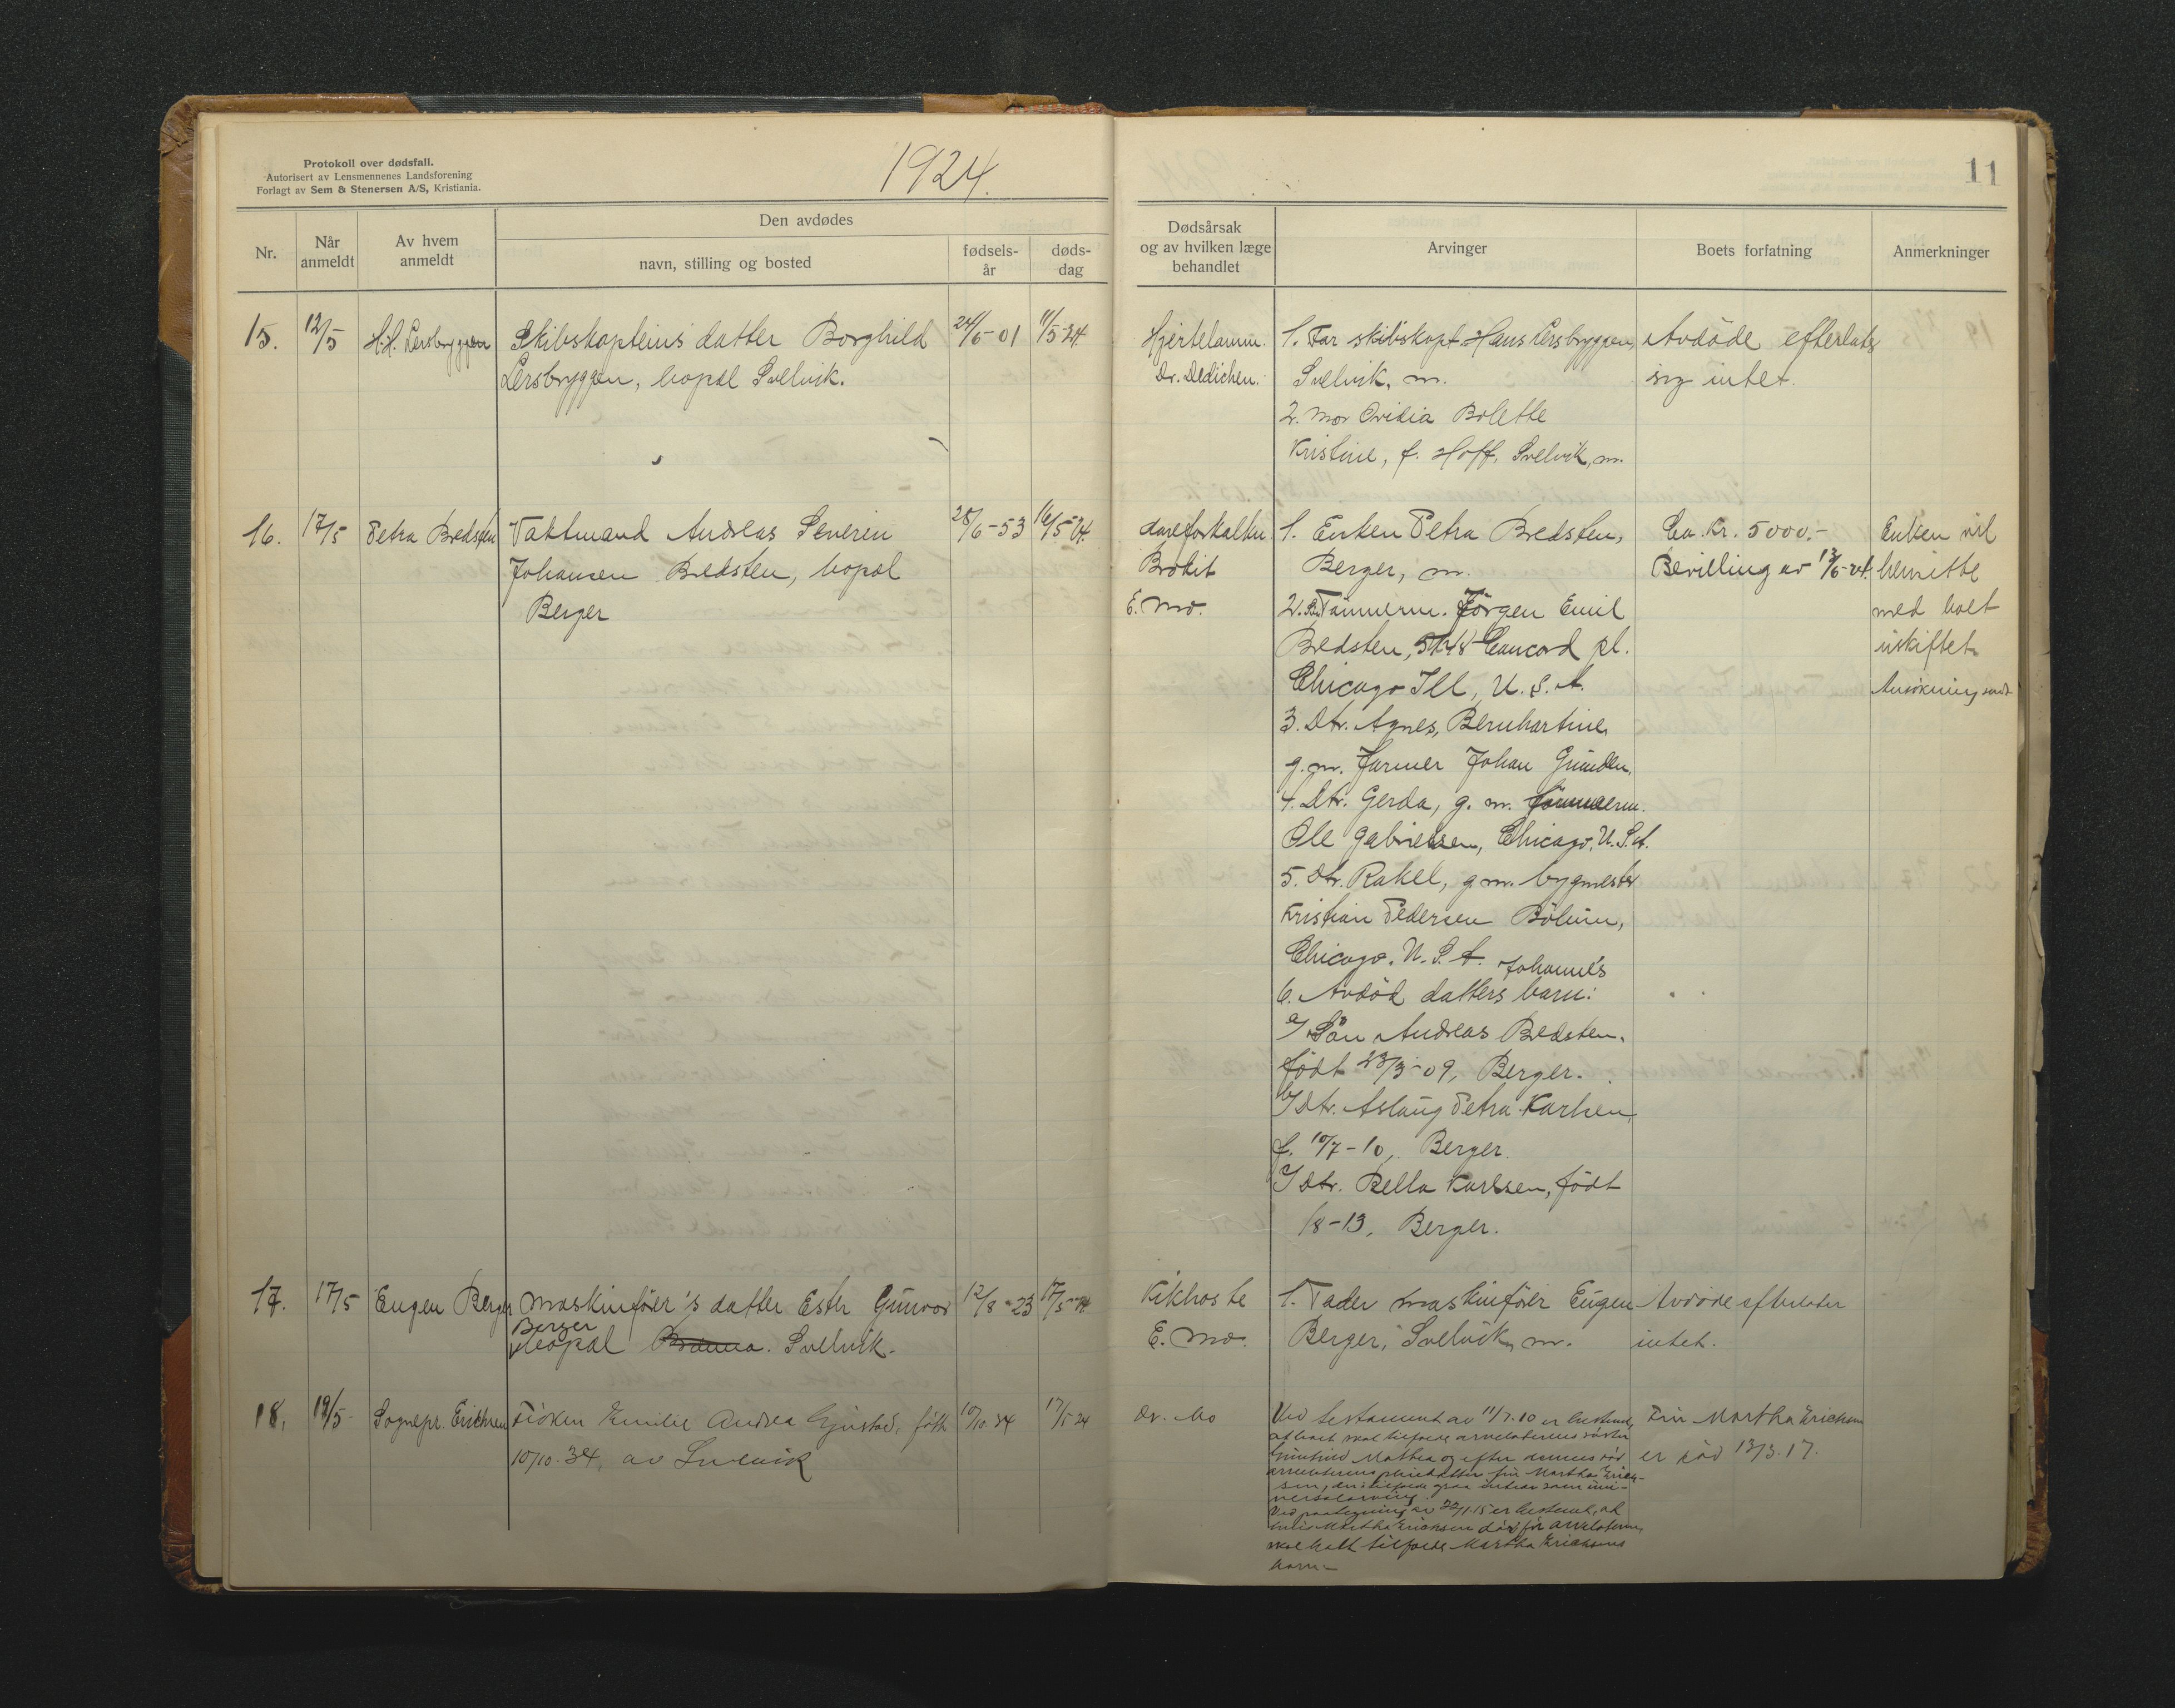 Protokoll over dødsfall.
Autorisert av Lensmennenes Landsforening
Forlagt av Sem & Stenersen A/S, Kristiania.
1924.
Nr.
Når anmeldt
Av hvem anmeldt
Den avdødes
navn, stilling og bosted
fødsels-år
døds-dag
11
Dødsårsak
og av hvilken læge
behandlet
Arvinger
Boets forfatning
Anmerkninger
15. 12/5 H.H. Lersbryggen Skibskapteins datter Borghild 24/6-01 11/5-24
Lersbryggen, bopæl Svelvik.
Hjertelamm.
Dr. Dedichen.
1. Far skibskapt. Hans Lersbryggen,
Svelvik, m.
2. Mor Ovidia Bolette
Kristine, f. Hoff, Svelvik, m.
Avdöde efterlater
sig intet.
16. 17/5 Petra Bredsten Vaktmand Andreas Severin 28/6-53 16/5-24
Johansen Bredsten, bopæl
Berger
Aareforkalkn.
Brokit
E. Mo.
1. Enken Petra Bredsten,
Berger, m.
2. Sn Tömmerm. Jörgen Emil
Bredsten, Concord pl.
Chicago Ill, U.S.A.
3. Dtr. Agnes, Bernhartine,
g.m. farmer Johan
4. Dtr. Gerda, g. m. tömmerm.
Ole Gabrielsen, Chicago, U.S.A.
5. Dtr. Rakel, g.m. bygmester
Kristian Pedersen
Chicago. U.S.A.
Johanne's
6. Avdöd datters barn:
a/ Sön Andreas Bredsten.
födt 23/3-09, Berger.
b/ Dtr. Aslaug Petra Karlsen,
f. 10/7-10, Berger.
c/ Dtr. Bella Karlsen, födt
1/8-13, Berger.
Ca. Kr. 5000.-
Bevilling av 13/6-24.
Enken vil
hensitte
med boet
uskiftet.
Ansökning sendt
17. 17/5 Eugen Berger Maskinförer's datter Esther Gunvor 12/8-23 17/5-24
Berger
bopæl Svelvik.
Kikhoste
E. Mo.
1. Fader maskinförer Eugen
Berger, Svelvik, m.
Avdöde efterlater
intet.
18. 19/5 Sognepr. Erichsen Fröken Emilie Andrea född 10/10.34 17/5 24
10/10.34, av Svelvik
Dr. Mo
Ved testament av 11/7.10 er bestemt,
at boet skal tilfalde arvelaterens söster
Mathea og efter dennes död
arvelaterens pleiedatter fru Martha Erich-
sen, der tilfalde som uni-
versalarving.
Ved paategning av 22/1.15 er bestemt, at
hvis Martha Erichsen dör för arvelateren,
skal boet tilfalde Martha Erichsens
barn.-
Fru Martha Erichsen
er död 13/3.17.